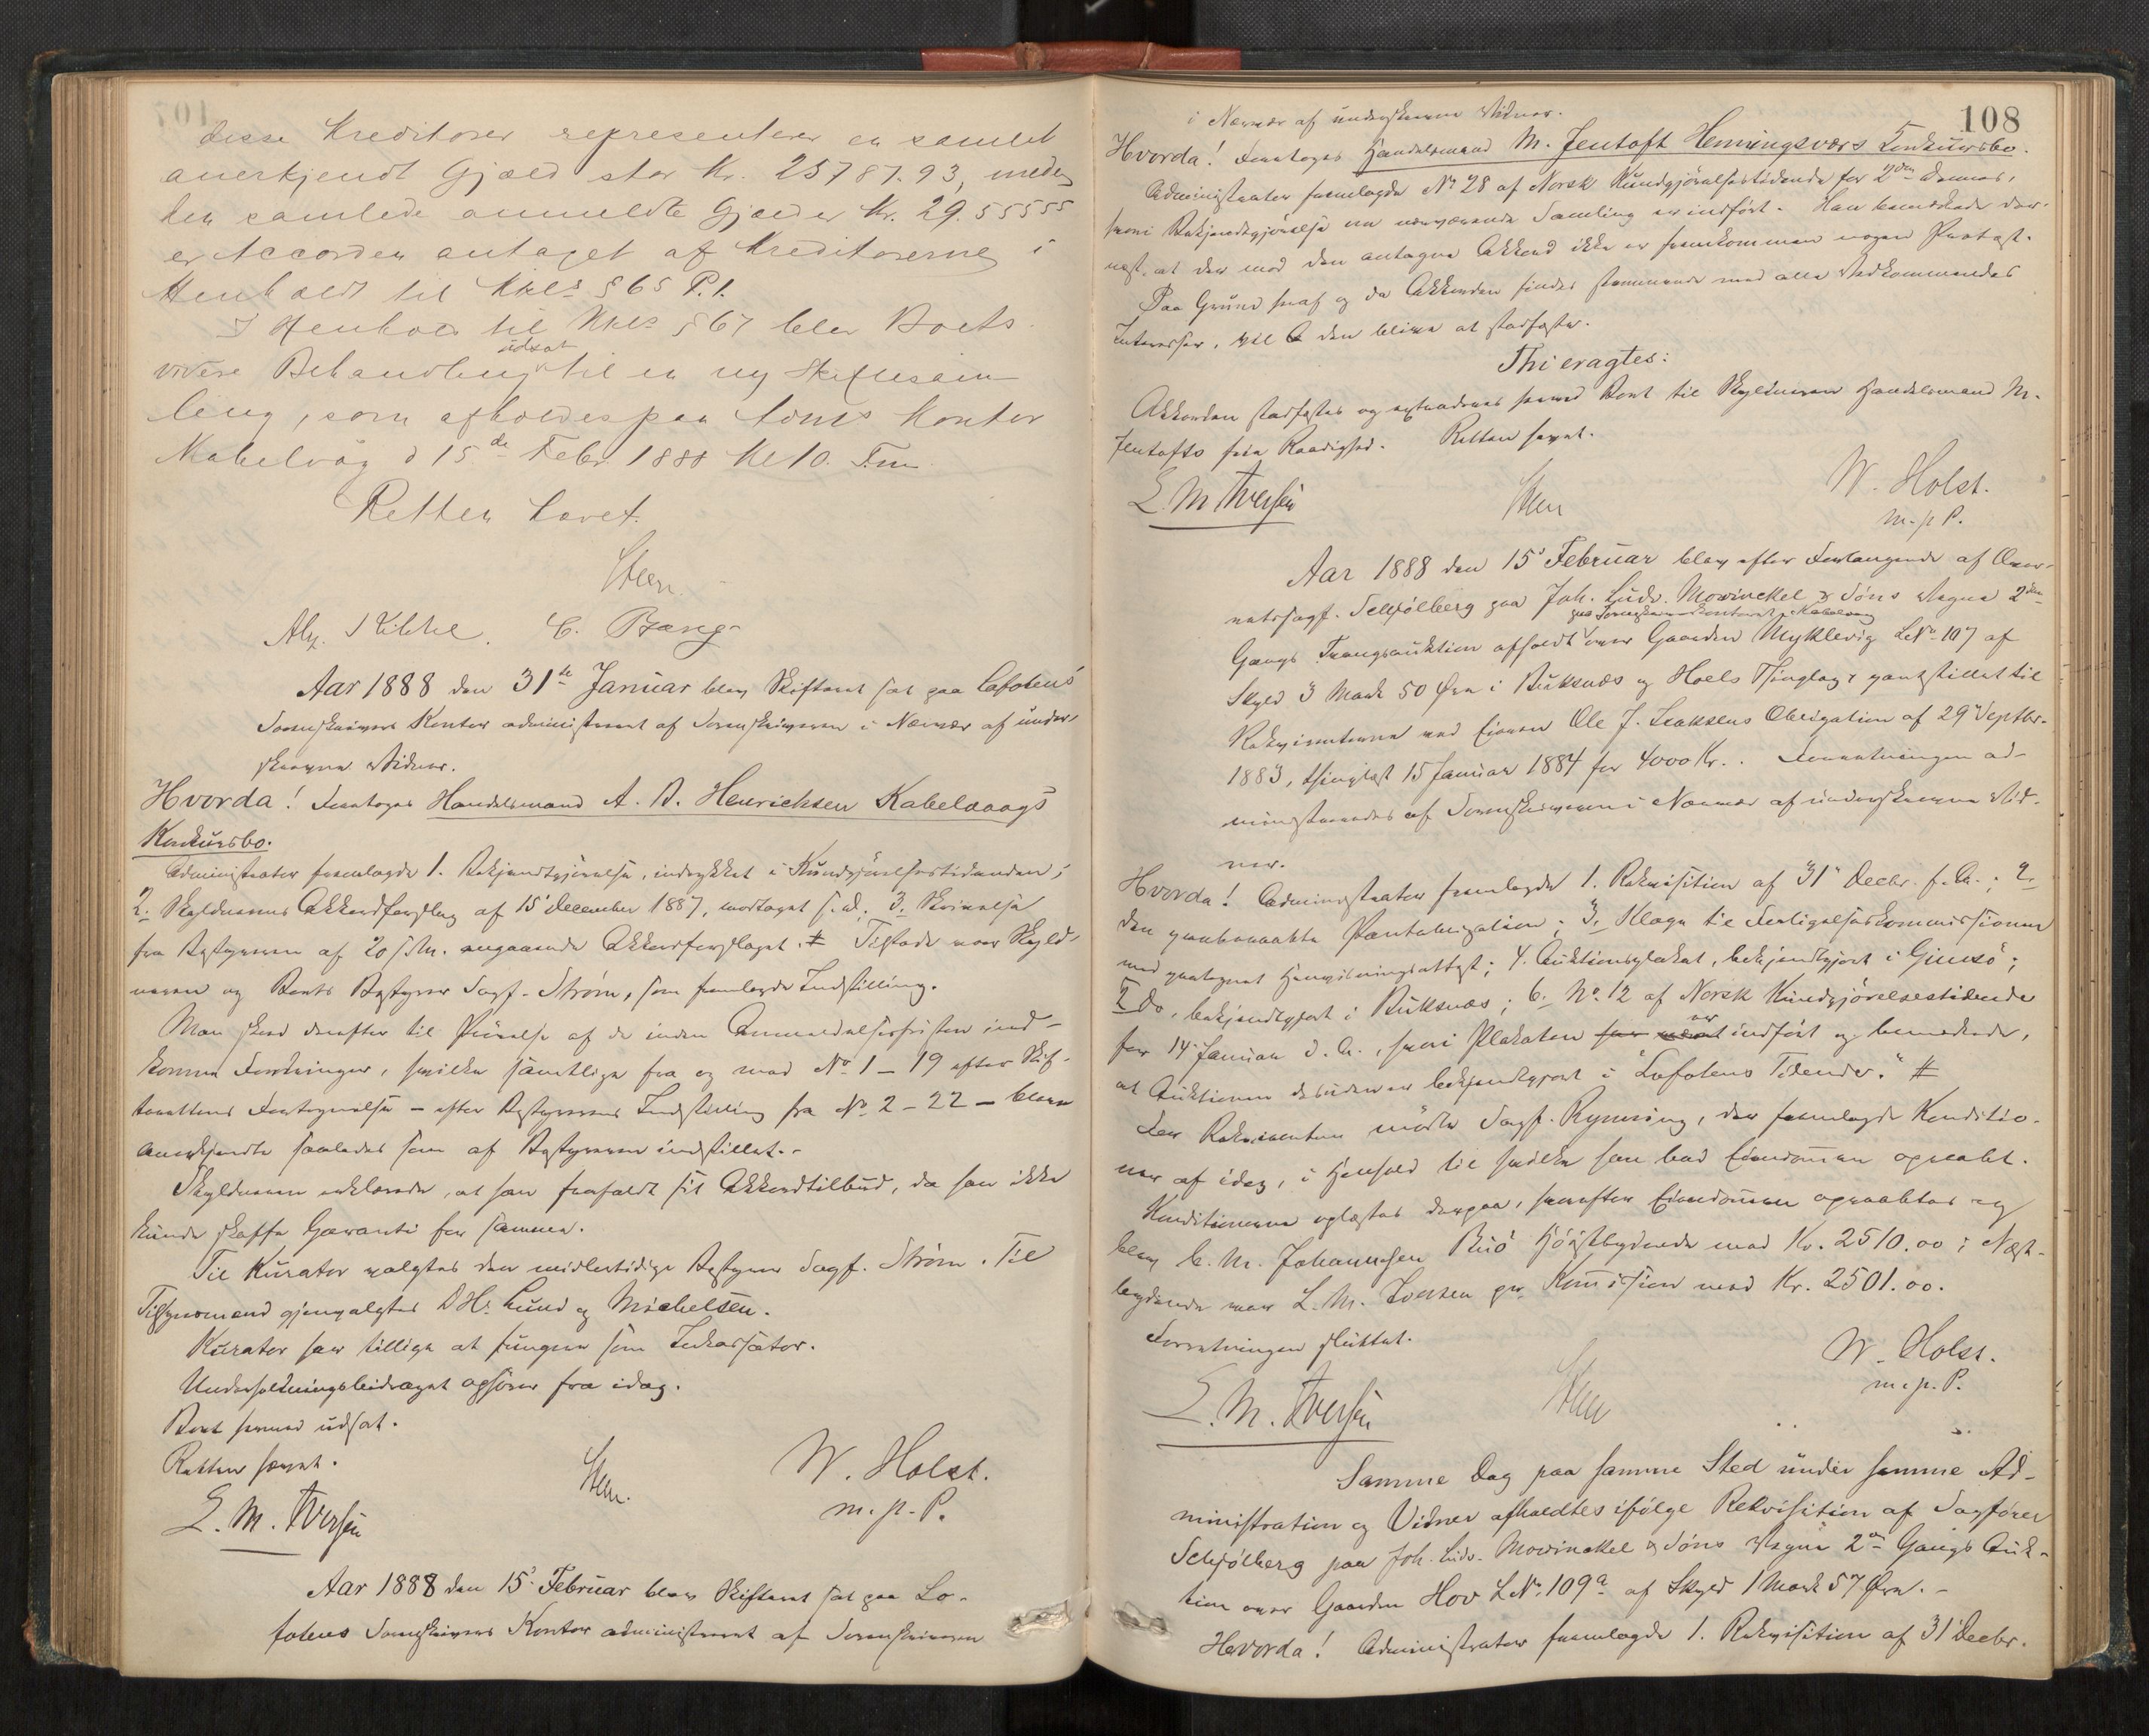 disse Kreditorer representerer en samlet
anerkjendt Gjæld stor Kr. 25787.93, medens
den samlede anmeldte Gjæld er Kr. 29.555 55
er Accorden antaget af Kreditorerne i
Henhold til Kkls § 65 P. 1.
I Henhold til Kkls § 67 blev Boets
videre Behandling udsat til en ny Skiftesam
ling, som afholdes paa Adms Kontor
Kabelvåg d 15de Febr 1888 Kl 10. Fm.
Retten hævet.
Steen
Alx. Kiikke. C. Bang
Aar 1888 den 31te Januar blev Skifteret sat paa Lofotens
Sorenskrivers Kontor administreret af Sorenskriveren i Nærvær af under-
skrevne Vidner.
Hvorda! Foretoges Handelsmand A. B. Henrichsen Kabelvaags
Konkursbo.
Administrator fremlagde 1. Bekjendtgjørelse, indrykket i Kundgjørelsestidenden;
2. Skyldnerens Akkordforslag af 15' December 1887, modtaget s. D. 3. Skrivelse
fra Bestyreren af 20 f. M. angaaende Akkordforslaget. # Tilstede var Skyld-
neren og Boets Bestyrer Sagf. Strøm, som fremlagde Indstilling.
Man skred derefter til Prøvelse af de inden Anmeldelsesfristen ind-
komne Fordringer, hvilke samtlige fra og med No 1 - 19 efter Skif-
terettens Fortegnelse - efter Bestyrerens Indstilling fra No 2 - 22 - bleve
anerkjendte saaledes som af Bestyreren indstillet. -
Skyldneren erklærede, at han frafaldt sit Akkordtilbud, da han ikke
kunde skaffe Garanti for samme.
Til Kurator valgtes den midlertidige Bestyrer Sagf. Strøm. Til
Tilsynsmænd gjenvalgtes DHr. Lund og Michelsen.
Kurator har tillige at fungere som Inkassator.
Underholdningsbidraget ophører fra idag.
Boet hermed udsat.
Retten hævet.
Steen.
W. Holst.
m. p. P.
E. M. Iversen
Aar 1888 den 15' Februar blev Skifteret sat paa Lo-
fotens Sorenskrivers Kontor administreret af Sorenskriveren
108
i Nærvær af underskrevne Vidner.
Hvorda! Foretoges Handelsmand M. Jentoft Henningsværs Konkursbo.
Administrator fremlagde No 28 af Norsk Kundgjørelsestidende for 2den dennes,
hvori Bekjendtgjørelse om nærværende Samling er indført. Han bemærkede der-
næst, at der mod den antagne Akkord ikke er fremkommen nogen Protest.
Paa Grund heraf og da Akkorden findes stemmende med alle Vedkommendes
Interesser, vil den blive at stadfæste.
Thi eragtes:
Akkorden stadfæstes og extraderes hermed Boet til Skyldneren Handelsmand M.
Jentofts frie Raadighed. Retten hævet.
E. M Iversen
Steen
W. Holst.
m. p P.
Aar 1888 den 15' Februar blev efter Forlangende af Over-
retssagf. Schjølberg paa Joh. Ludv. Mowinckel & Søns Vegne 2den
paa Sorenskriverkontoret, Kabelvaag
Gangs Tvangsauktion afholdt over Gaarden Myklevig LNo 107 af
Skyld 3 Mark 50 Øre i Buksnæs og Hols Thinglag, pantstillet til
Rekvirenterne ved Eieren Ole J. Isaksens Obligation af 29' Septbr.
1883, thinglæst 15 Januar 1884 for 4000 Kr. . Forretningen ad-
ministreredes af Sorenskriveren i Nærvær af underskrevne Vid-
ner.
Hvorda! Administrator fremlagde 1. Rekvisition af 31' Decbr. f. A.; 2.
den paaberaabte Pantobligation; 3. Klage til Forligelseskommissionen
med paategnet Henvisningsattest; 4. Auktionsplakat, bekjendtgjort i Gimsø;
5 do, bekjendtgjort i Buksnæs; 6. No. 12 af Norsk Kundgjørelsestidende
for 14' Januar d. A., hvori Plakaten er indført og bemærkede,
at Auktionen desuden er bekjendtgjort i "Lofotens Tidende". #
For Rekvirenten mødte Sagf. Rynning, der fremlagde Konditio-
ner af idag, i Henhold til hvilke han bad Eiendommen opraabt.
Konditionerne oplæstes derpaa, hvorefter Eiendommen opraabtes og
blev C. M. Johannesen Buø Høistbydende med Kr. 2510.00; Næst-
bydende var L. M. Iversen pr. Komission med Kr. 2501.00.
Forretningen sluttet.
W. Holst.
m. p. P.
E. M. Iversen
Steen
Samme Dag paa samme Sted under samme Ad-
ministration og Vidner afholdtes ifølge Rekvisition af Sagfører
Schjølberg paa Joh. Ludv. Mowinckel & Søns Vegne 2den Gangs Auk-
tion over Gaarden Hov LNo. 109a af Skyld 1 Mark 57 Øre. -
Hvorda! Administrator fremlagde 1. Rekvisition af 31' Decbr.